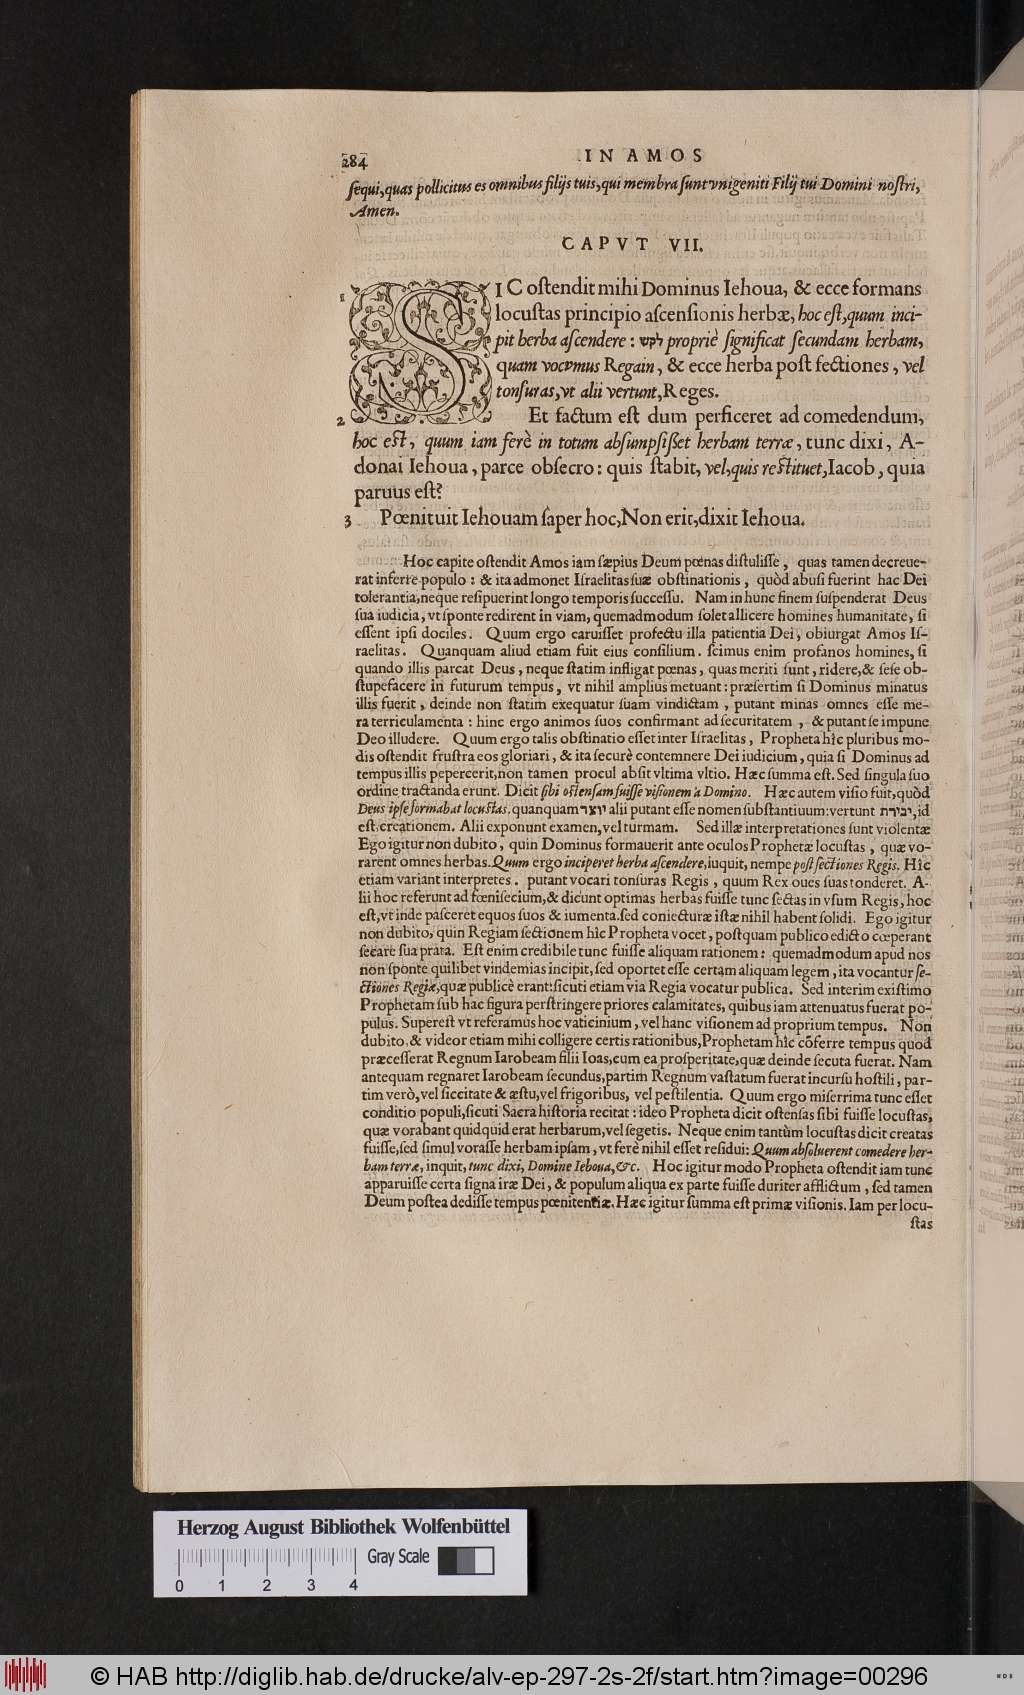 284
IN AMOS
ſequi, quas pollicitus es omnibus filijs tuis, qui membra ſunt vnigeniti Filij tui Domini noſtri,
Amen.
CAPVT VII.
1 SIC oſtendit mihi Dominus Iehoua, & ecce formans
locuſtas principio aſcenſionis herbæ, hoc eſt, quum inci-
pit herba aſcendere: לקש propriè ſignificat ſecundam herbam,
quam vocvmus Regain, & ecce herba poſt ſectiones, vel
tonſuras, vt alii vertunt, Reges.
2 Et factum eſt dum perficeret ad comedendum,
hoc eſt, quum iam ferè in totum abſumpſiſſet herbam terræ, tunc dixi, A-
donai Iehoua, parce obſecro: quis ſtabit, vel, quis reſtituet, Iacob, quia
paruus eſt?
3 Pœnituit Iehouam ſaper hoc, Non erit, dixit Iehoua.
Hoc capite oſtendit Amos iam ſæpius Deum pœnas diſtuliſſe, quas tamen decreue-
rat inferre populo: & ita admonet Iſraelitas ſuæ obſtinationis, quòd abuſi fuerint hac Dei
tolerantia, neque reſipuerint longo temporis ſucceſſu. Nam in hunc finem ſuſpenderat Deus
ſua iudicia, vt ſponte redirent in viam, quemadmodum ſolet allicere homines humanitate, ſi
eſſent ipſi dociles. Quum ergo caruiſſet profectu illa patientia Dei, obiurgat Amos Iſ-
raelitas. Quanquam aliud etiam fuit eius conſilium. ſcimus enim profanos homines, ſi
quando illis parcat Deus, neque ſtatim infligat pœnas, quas meriti ſunt, ridere, & ſeſe ob-
ſtupefacere in futurum tempus, vt nihil amplius metuant: præſertim ſi Dominus minatus
illis fuerit, deinde non ſtatim exequatur ſuam vindictam, putant minas omnes eſſe me-
ra terriculamenta: hinc ergo animos ſuos confirmant ad ſecuritatem, & putant ſe impune
Deo illudere. Quum ergo talis obſtinatio eſſet inter Iſraelitas, Propheta hîc pluribus mo-
dis oſtendit fruſtra eos gloriari, & ita ſecurè contemnere Dei iudicium, quia ſi Dominus ad
tempus illis pepercerit, non tamen procul abſit vltima vltio. Hæc ſumma eſt. Sed ſingula ſuo
ordine tractanda erunt. Dicit ſibi oſtenſam fuiſſe viſionem à Domino. Hæc autem viſio fuit, quòd
Deus ipſe formabat locuſtas. quanquam יוצר alii putant eſſe nomen ſubſtantiuum: vertunt יצירת, id
eſt, creationem. Alii exponunt examen, vel turmam. Sed illæ interpretationes ſunt violentæ
Ego igitur non dubito, quin Dominus formauerit ante oculos Prophetæ locuſtas, quæ vo-
rarent omnes herbas. Quum ergo inciperet herba aſcendere, iuquit, nempe poſt ſectiones Regis. Hîc
etiam variant interpretes. putant vocari tonſuras Regis, quum Rex oues ſuas tonderet. A-
lii hoc referunt ad fœniſecium, & dicunt optimas herbas fuiſſe tunc ſectas in vſum Regis, hoc
eſt, vt inde paſceret equos ſuos & iumenta. ſed coniecturæ iſtæ nihil habent ſolidi. Ego igitur
non dubito, quin Regiam ſectionem hîc Propheta vocet, poſtquam publico edicto cœperant
ſecare ſua prata. Eſt enim credibile tunc fuiſſe aliquam rationem: quemadmodum apud nos
non ſponte quilibet vindemias incipit, ſed oportet eſſe certam aliquam legem, ita vocantur ſe-
ctiones Regiæ, quæ publicè erant: ſicuti etiam via Regia vocatur publica. Sed interim exiſtimo
Prophetam ſub hac figura perſtringere priores calamitates, quibus iam attenuatus fuerat po-
pulus. Supereſt vt referamus hoc vaticinium, vel hanc viſionem ad proprium tempus. Non
dubito, & videor etiam mihi colligere certis rationibus, Prophetam hîc cōferre tempus quod
præceſſerat Regnum Iarobeam filii Ioas, cum ea proſperitate, quæ deinde ſecuta fuerat. Nam
antequam regnaret Iarobeam ſecundus, partim Regnum vaſtatum fuerat incurſu hoſtili, par-
tim verò, vel ſiccitate & æſtu, vel frigoribus, vel peſtilentia. Quum ergo miſerrima tunc eſſet
conditio populi, ſicuti Sacra hiſtoria recitat: ideo Propheta dicit oſtenſas ſibi fuiſſe locuſtas,
quæ vorabant quidquid erat herbarum, vel ſegetis. Neque enim tantùm locuſtas dicit creatas
fuiſſe, ſed ſimul voraſſe herbam ipſam, vt ferè nihil eſſet reſidui: Quum abſoluerent comedere her-
bam terræ, inquit, tunc dixi, Domine Iehoua, &c. Hoc igitur modo Propheta oſtendit iam tunc
apparuiſſe certa ſigna iræ Dei, & populum aliqua ex parte fuiſſe duriter afflictum, ſed tamen
Deum poſtea dediſſe tempus pœnitentiæ. Hæc igitur ſumma eſt primæ viſionis. Iam per locu-
ſtas
Herzog August Bibliothek Wolfenbüttel
Gray Scale
0 1 2 3 4
© HAB http://diglib.hab.de/drucke/alv-ep-297-2s-2f/start.htm?image=00296